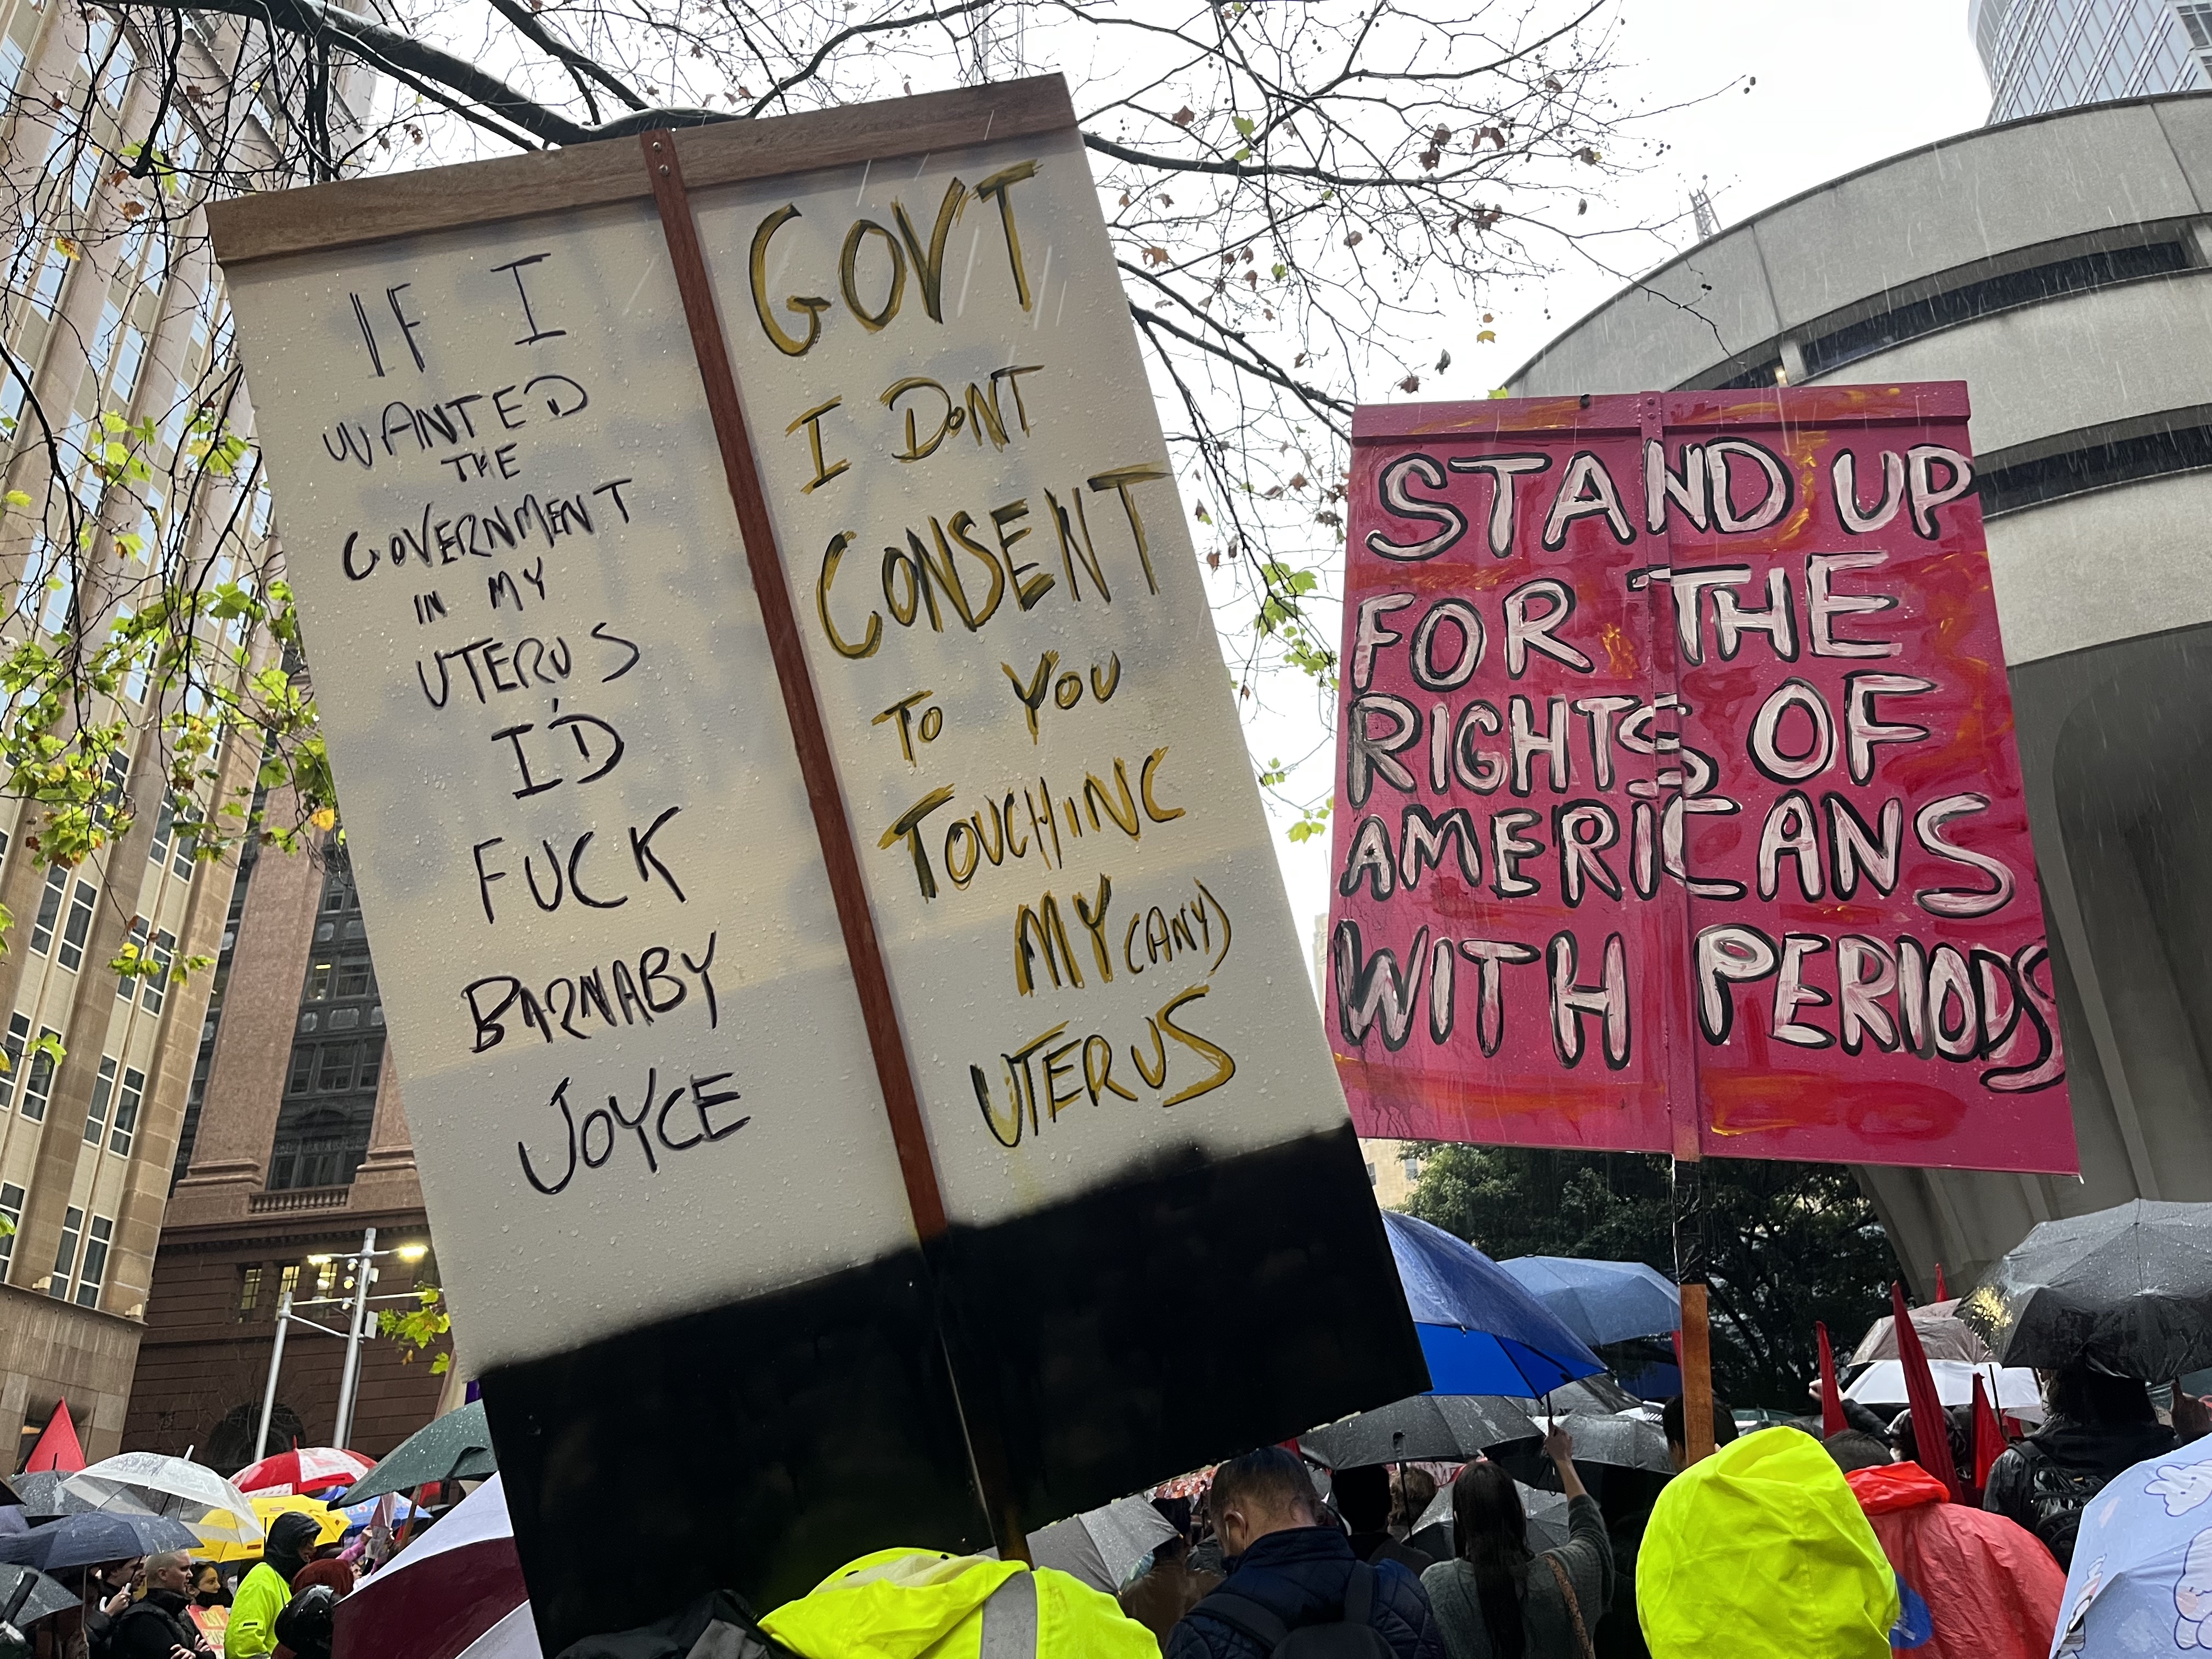 IF I
WANTED
THE
GOVERNMENT
IN MY
UTERUS
I'D
FUCK
BARNABY
JOYCE
GOVT
I DONT
CONSENT
TO YOU
TOUCHING
MY (ANY)
UTERUS
STAND UP
FOR THE
RIGHTS OF
AMERICANS
WITH PERIODS